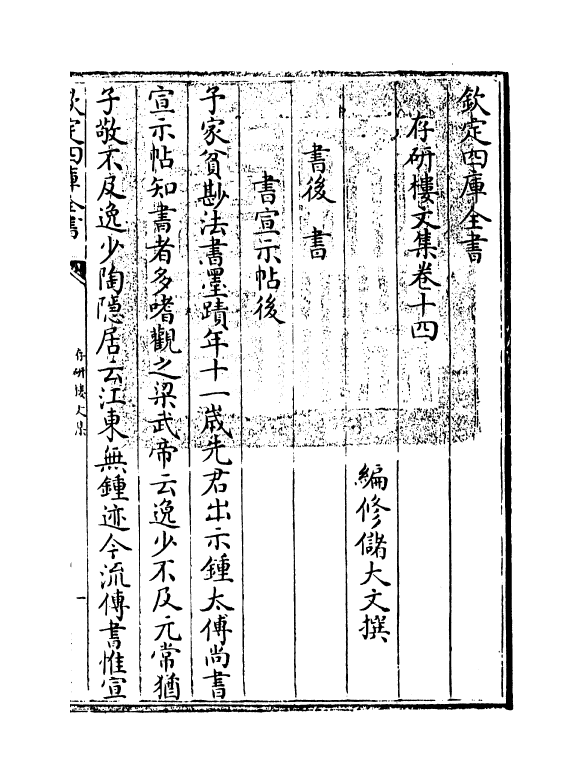 欽定四庫全書
存研樓文集卷十四
編修儲大文撰
書後 書
書宣示帖後
子家貧尠法書墨蹟年十一歲先君出示鍾太傅尚書
宣示帖知書者多嗜觀之梁武帝云逸少不及元常猶
子敬不及逸少陶隱居云江東無鍾迹今流傳書惟宣
欽定四庫全書
存研樓文集
一